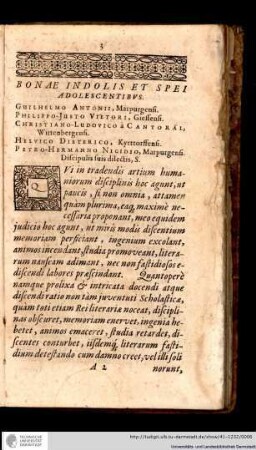 3
BONAE INDOLIS ET SPEI
ADOLESCENTIBVS.
GVILHELMO ANTONII, Marpurgensi.
PHILIPPO-JVSTO VIETORI, Giessensi.
CHRISTIANO-LUDOVICO à CANTORAI,
Wittenbergensi.
HELVICO DIETERICO,
PETRO-HERMANNO NIGIDIO, Marpurgensi.
Discipulis suis dilectis, S.
QVi in tradendis artium huma-
niorum disciplinis hoc agunt, ut
paucis, si non omnia, attamen
quàm plurima, eaq, maximè ne-
cessaria proponant, meo equidem
judicio hoc agunt, ut miris modis discentium
memoriam perficiant, ingenium excolant,
animos incendant, studia promoveant, litera-
rum nauseam adimant, nec non fastidiosos e-
discendi labores præscindant. Quantoperè
namque prolixa & intricata docendi atque
discendi ratio non tam juventuti Scholasticæ,
quàm toti etiam Rei literariæ noceat, discipli-
nas obscuret, memoriam enervet, ingenia he-
betet, animos emaceret, studia retardet, di-
scentes conturbet, iisdemq́; literarum fasti-
dium detestando cum damno creet, vel illi soli
A 2 norunt,
TECHNISCHE
UNIVERSITÄT
DARMSTADT
Universitäts- und Landesbibliothek Darmstadt